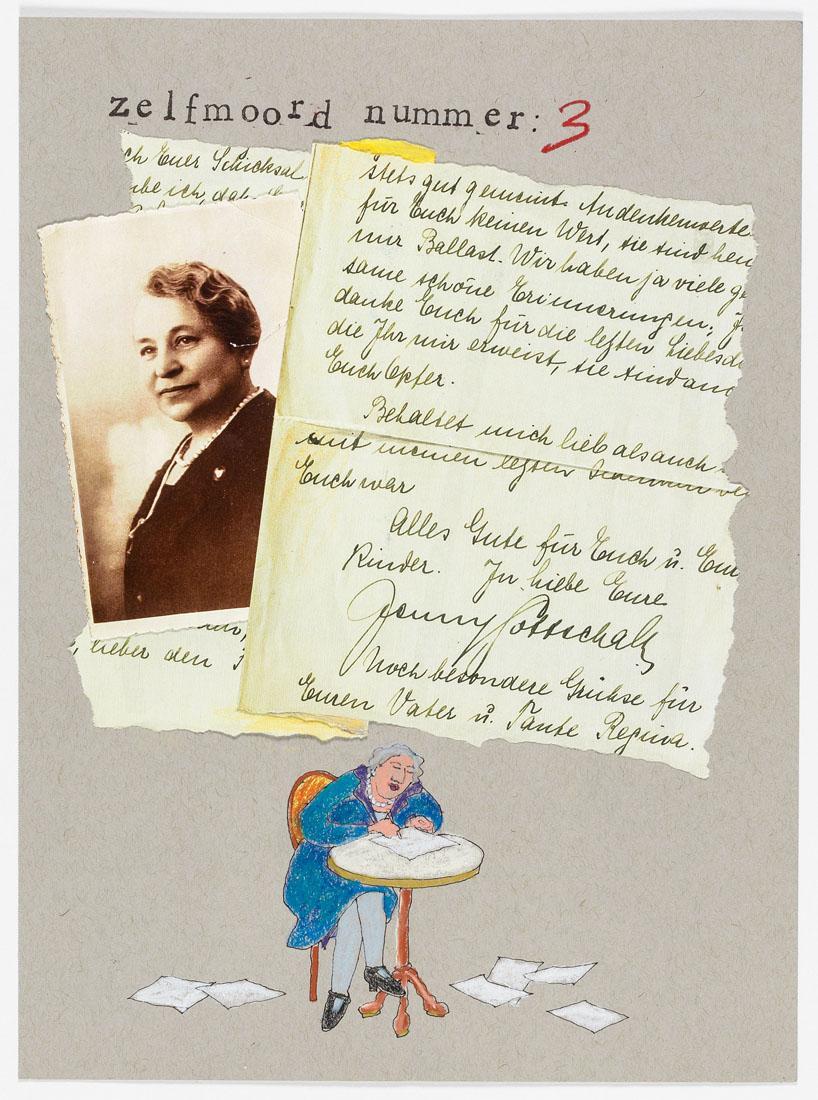 zelfmoord nummer: 3
ch Euer Schicksal
be ich, daß
stets gut gemeint. Andenkenwerte
für Euch keinen Wert, sie sind heu
mir Ballast. Wir haben ja viele ge
same schöne Erinnerungen; J
danke Euch für die letzten Liebesdi
die Ihr mir erweist, sie sind am
Euch Opfer.
Behaltet mich lieb als auch
mit meinen letzten
Euch war
Alles Gute für Euch u. Eur
Kinder. In Liebe Eure
Jenny Gottschalk
Noch besondere Grühse für
Euren Vater u. Tante Regina.
lieber den